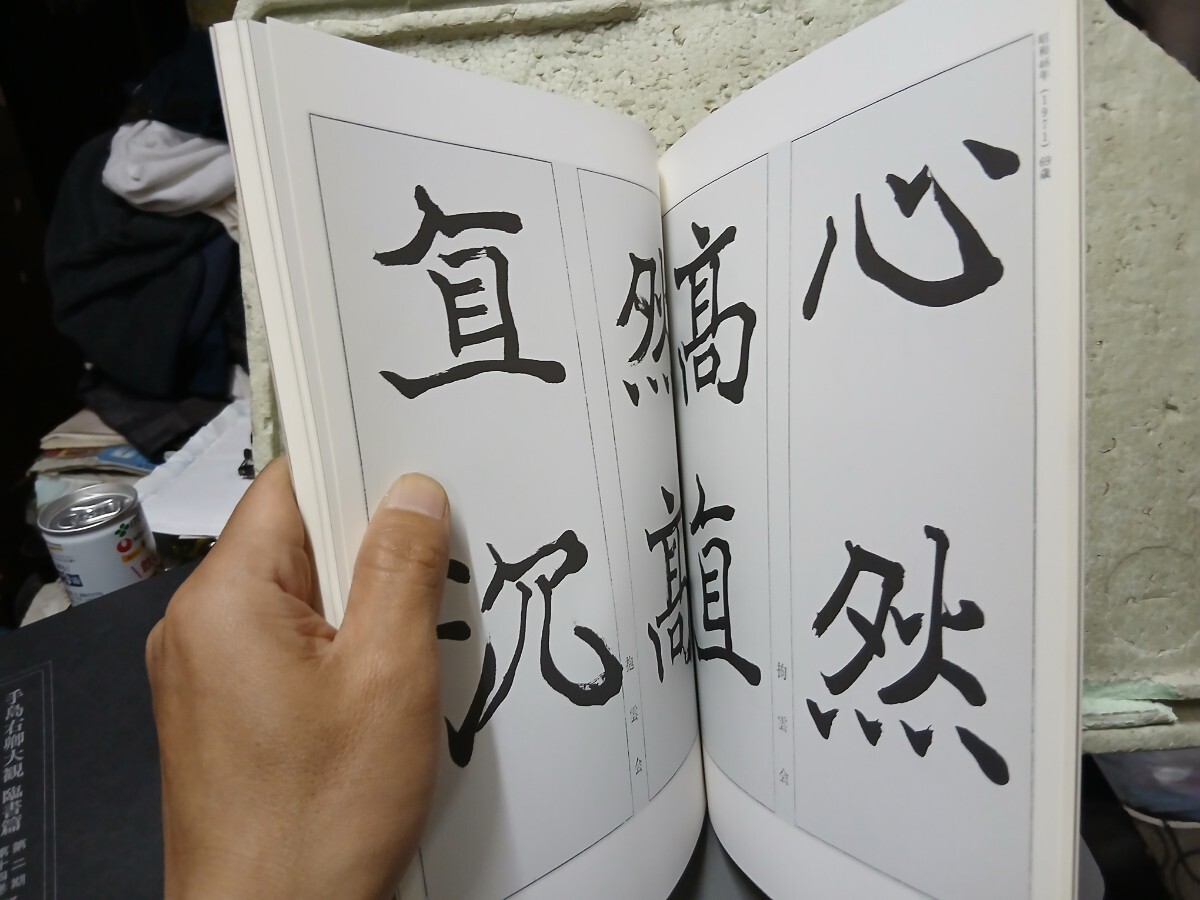 昭和46年(1971)69歳
心然
高直
然高
直沉
抱雲会
抱雲会
手島右卿大観 臨書篇 第二期